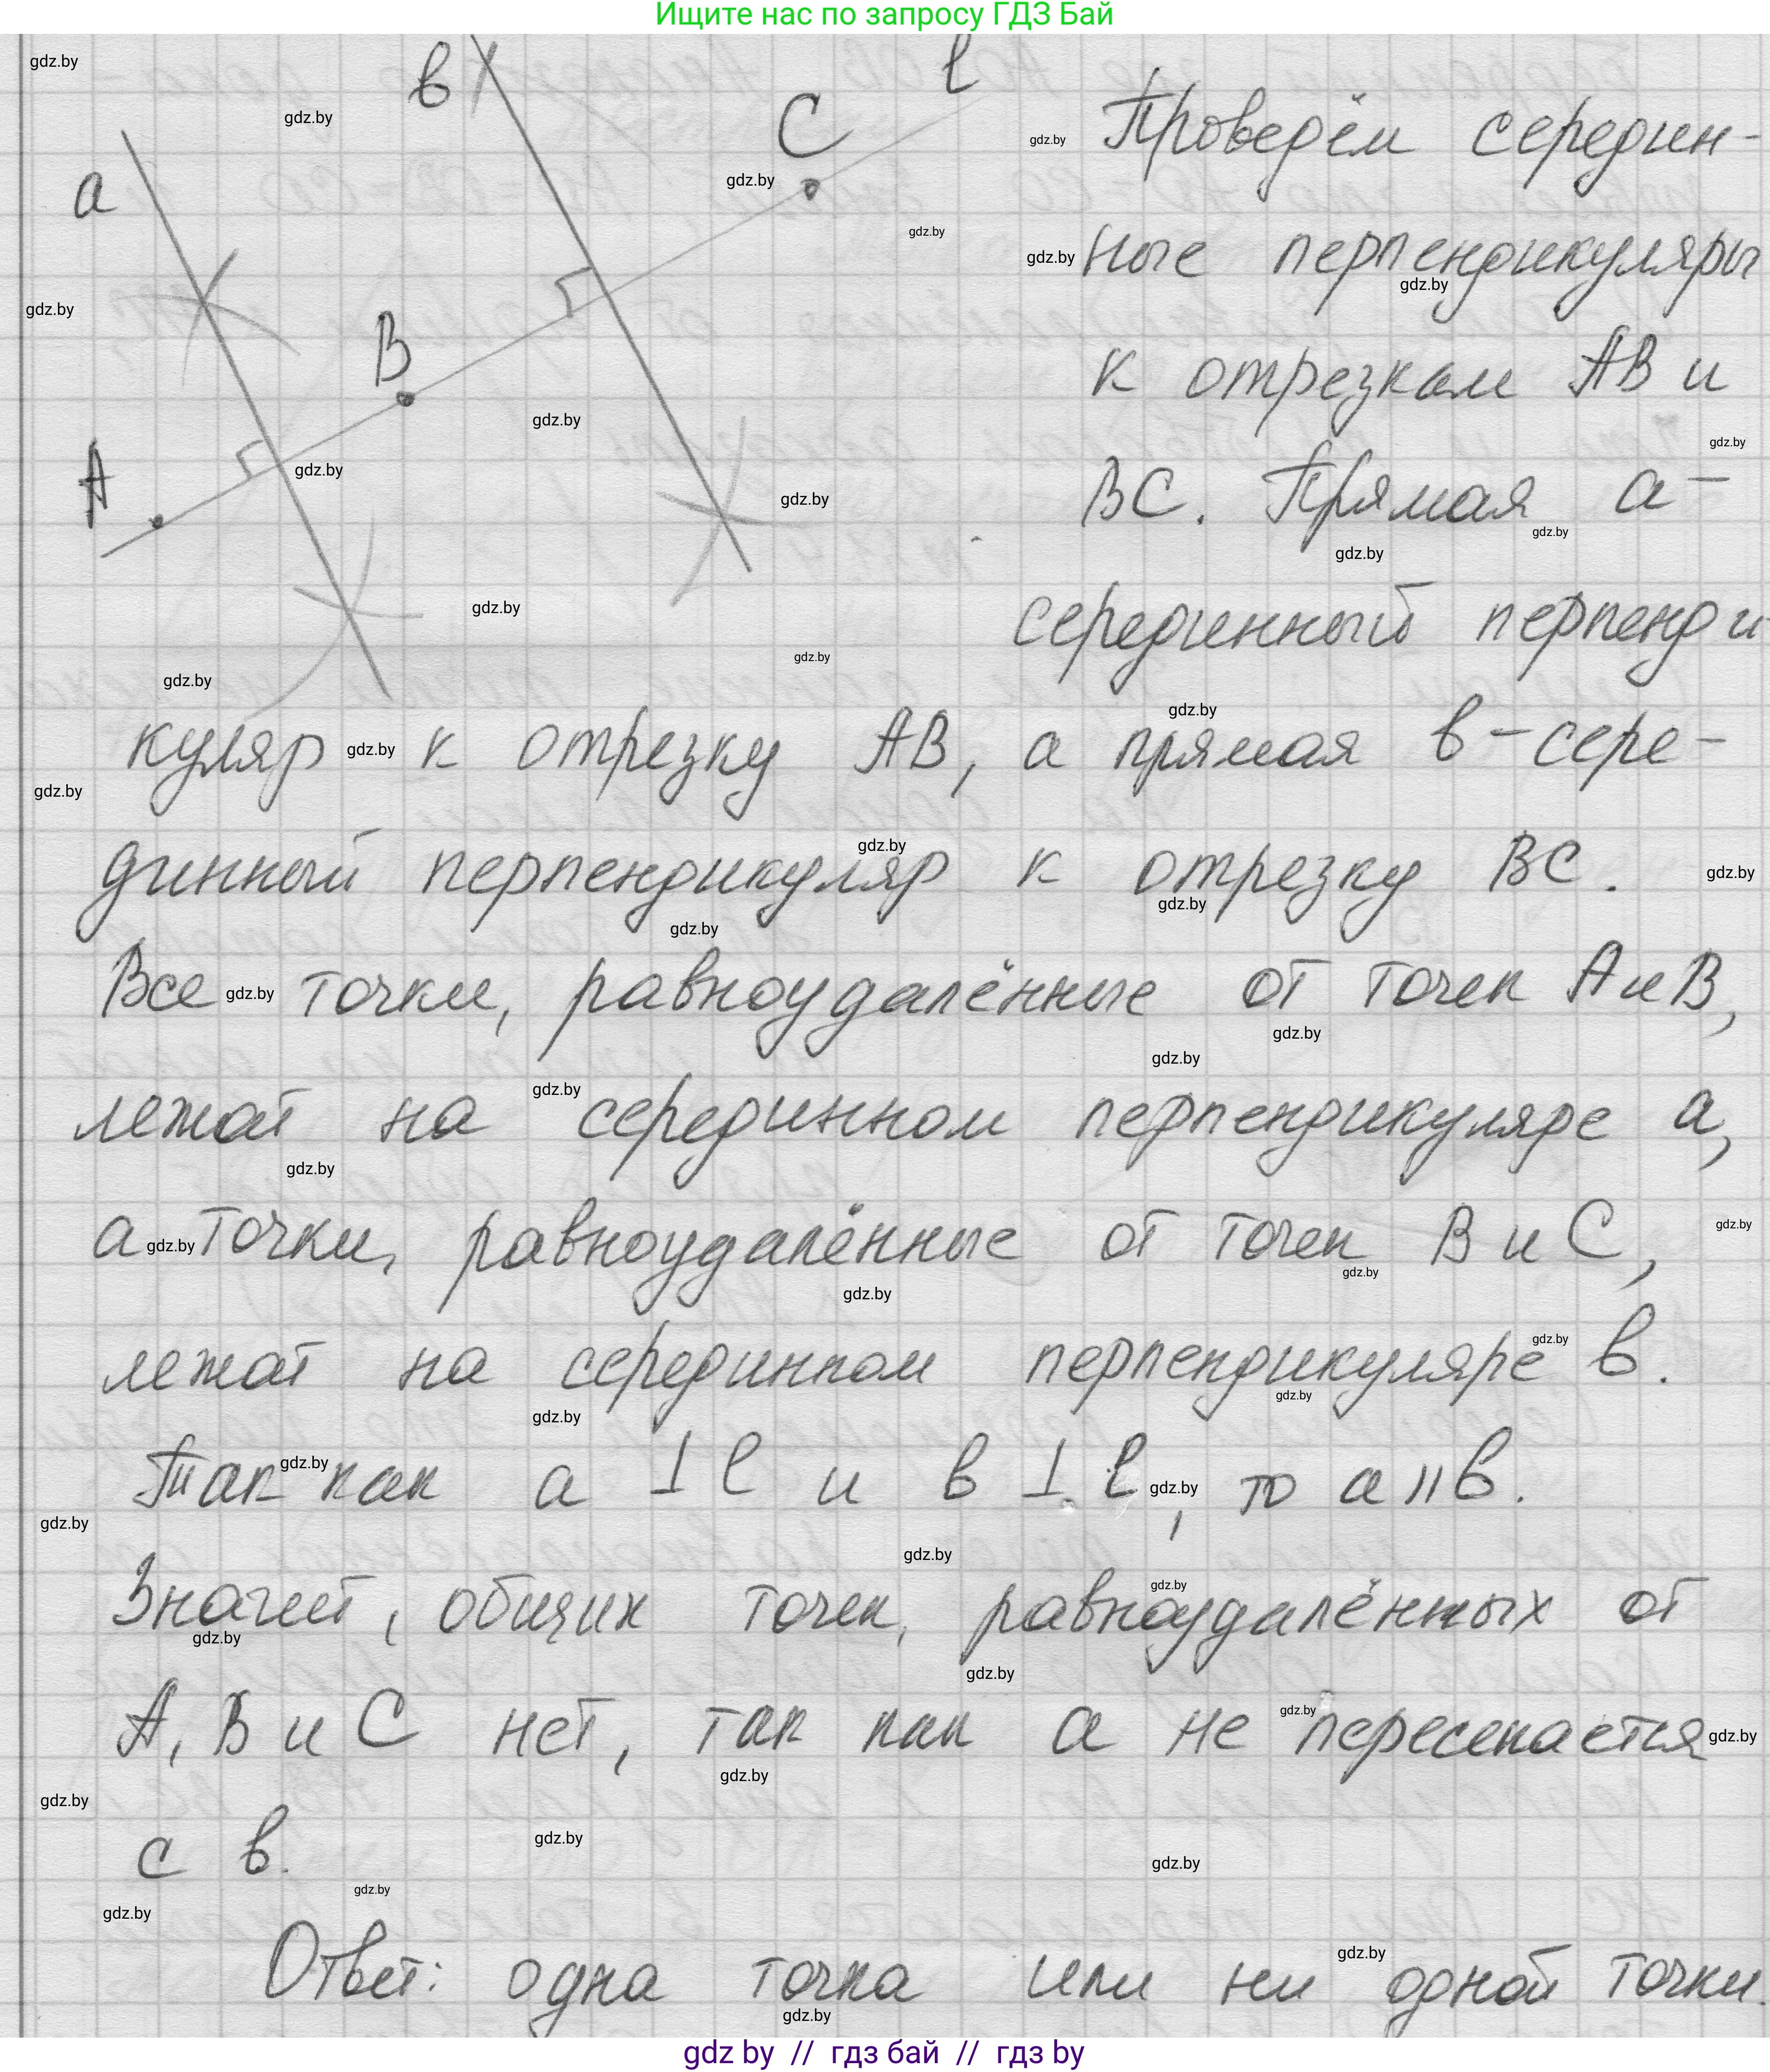 Ищите нас по запросу ГДЗ Бай
a
в
A
B
C
l
Проверём середин-
ные перпендикуляры
к отрезкам АВ и
ВС. Прямая а –
серединный перпенди
куляр к отрезку АВ, а прямая в – сере-
динный перпендикуляр к отрезку ВС.
Все точки, равноудалённые от точек А и В,
лежат на серединном перпендикуляре а,
а точки, равноудалённые от точек В и С,
лежат на серединном перпендикуляре в.
Так как а ⊥ l и в ⊥ l, то а || в.
Значит, общих точек, равноудалённых от
А, В и С нет, так как а не пересекается
с в.
Ответ: одна точка или ни одной точки.
gdz by // гдз бай // гдз by